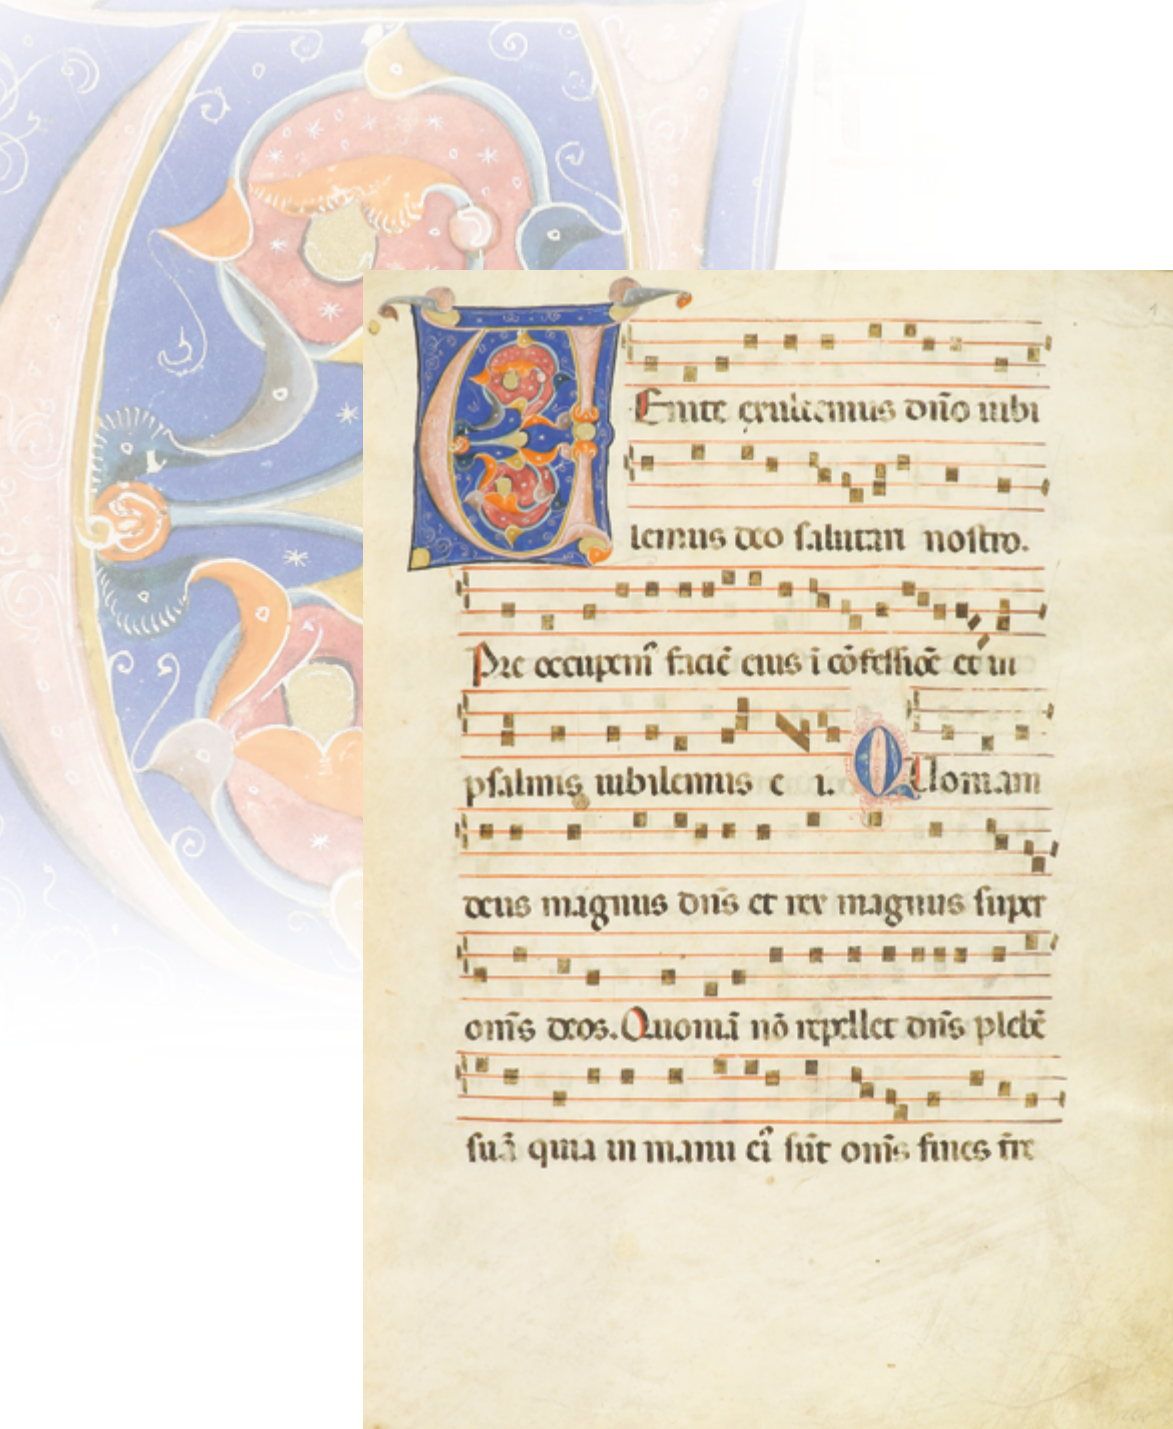 VEnite exultemus dño iubi
lemus deo salutari nostro.
Pre occupem᷒ faciē eius ī cōfessiōē et in
psalmis iubilemus e i. Quoniam
deus magnus dñs et rex magnus super
om̄s deos. Quoniā nō repellet dn̄s plebē
suā quia in manu ei᷒ sūt om̄s fines t̄re